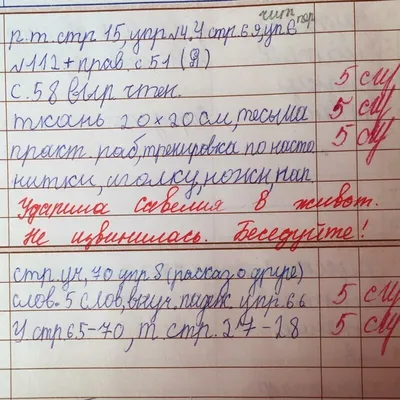 чит пер
р.т. стр 15, упр 14, У стр. 69, уп 6
№112 + прав. с 51 (Я)
с. 58 выр чтен. 5 сц
ткань 20×20 см, тесьма 5 сц
практ. раб, тренировка по насто 5 сц
нитки, иголку, ножн, нап.
Ударила Савелия в живот.
Не извинилась. Беседуйте!
стр. уч, 70 упр 8 (расказ о друге)
слов. 5 слов, внук. падеж. упр. 66 5 сц
У стр 65-70, т. стр. 27-28 5 сц